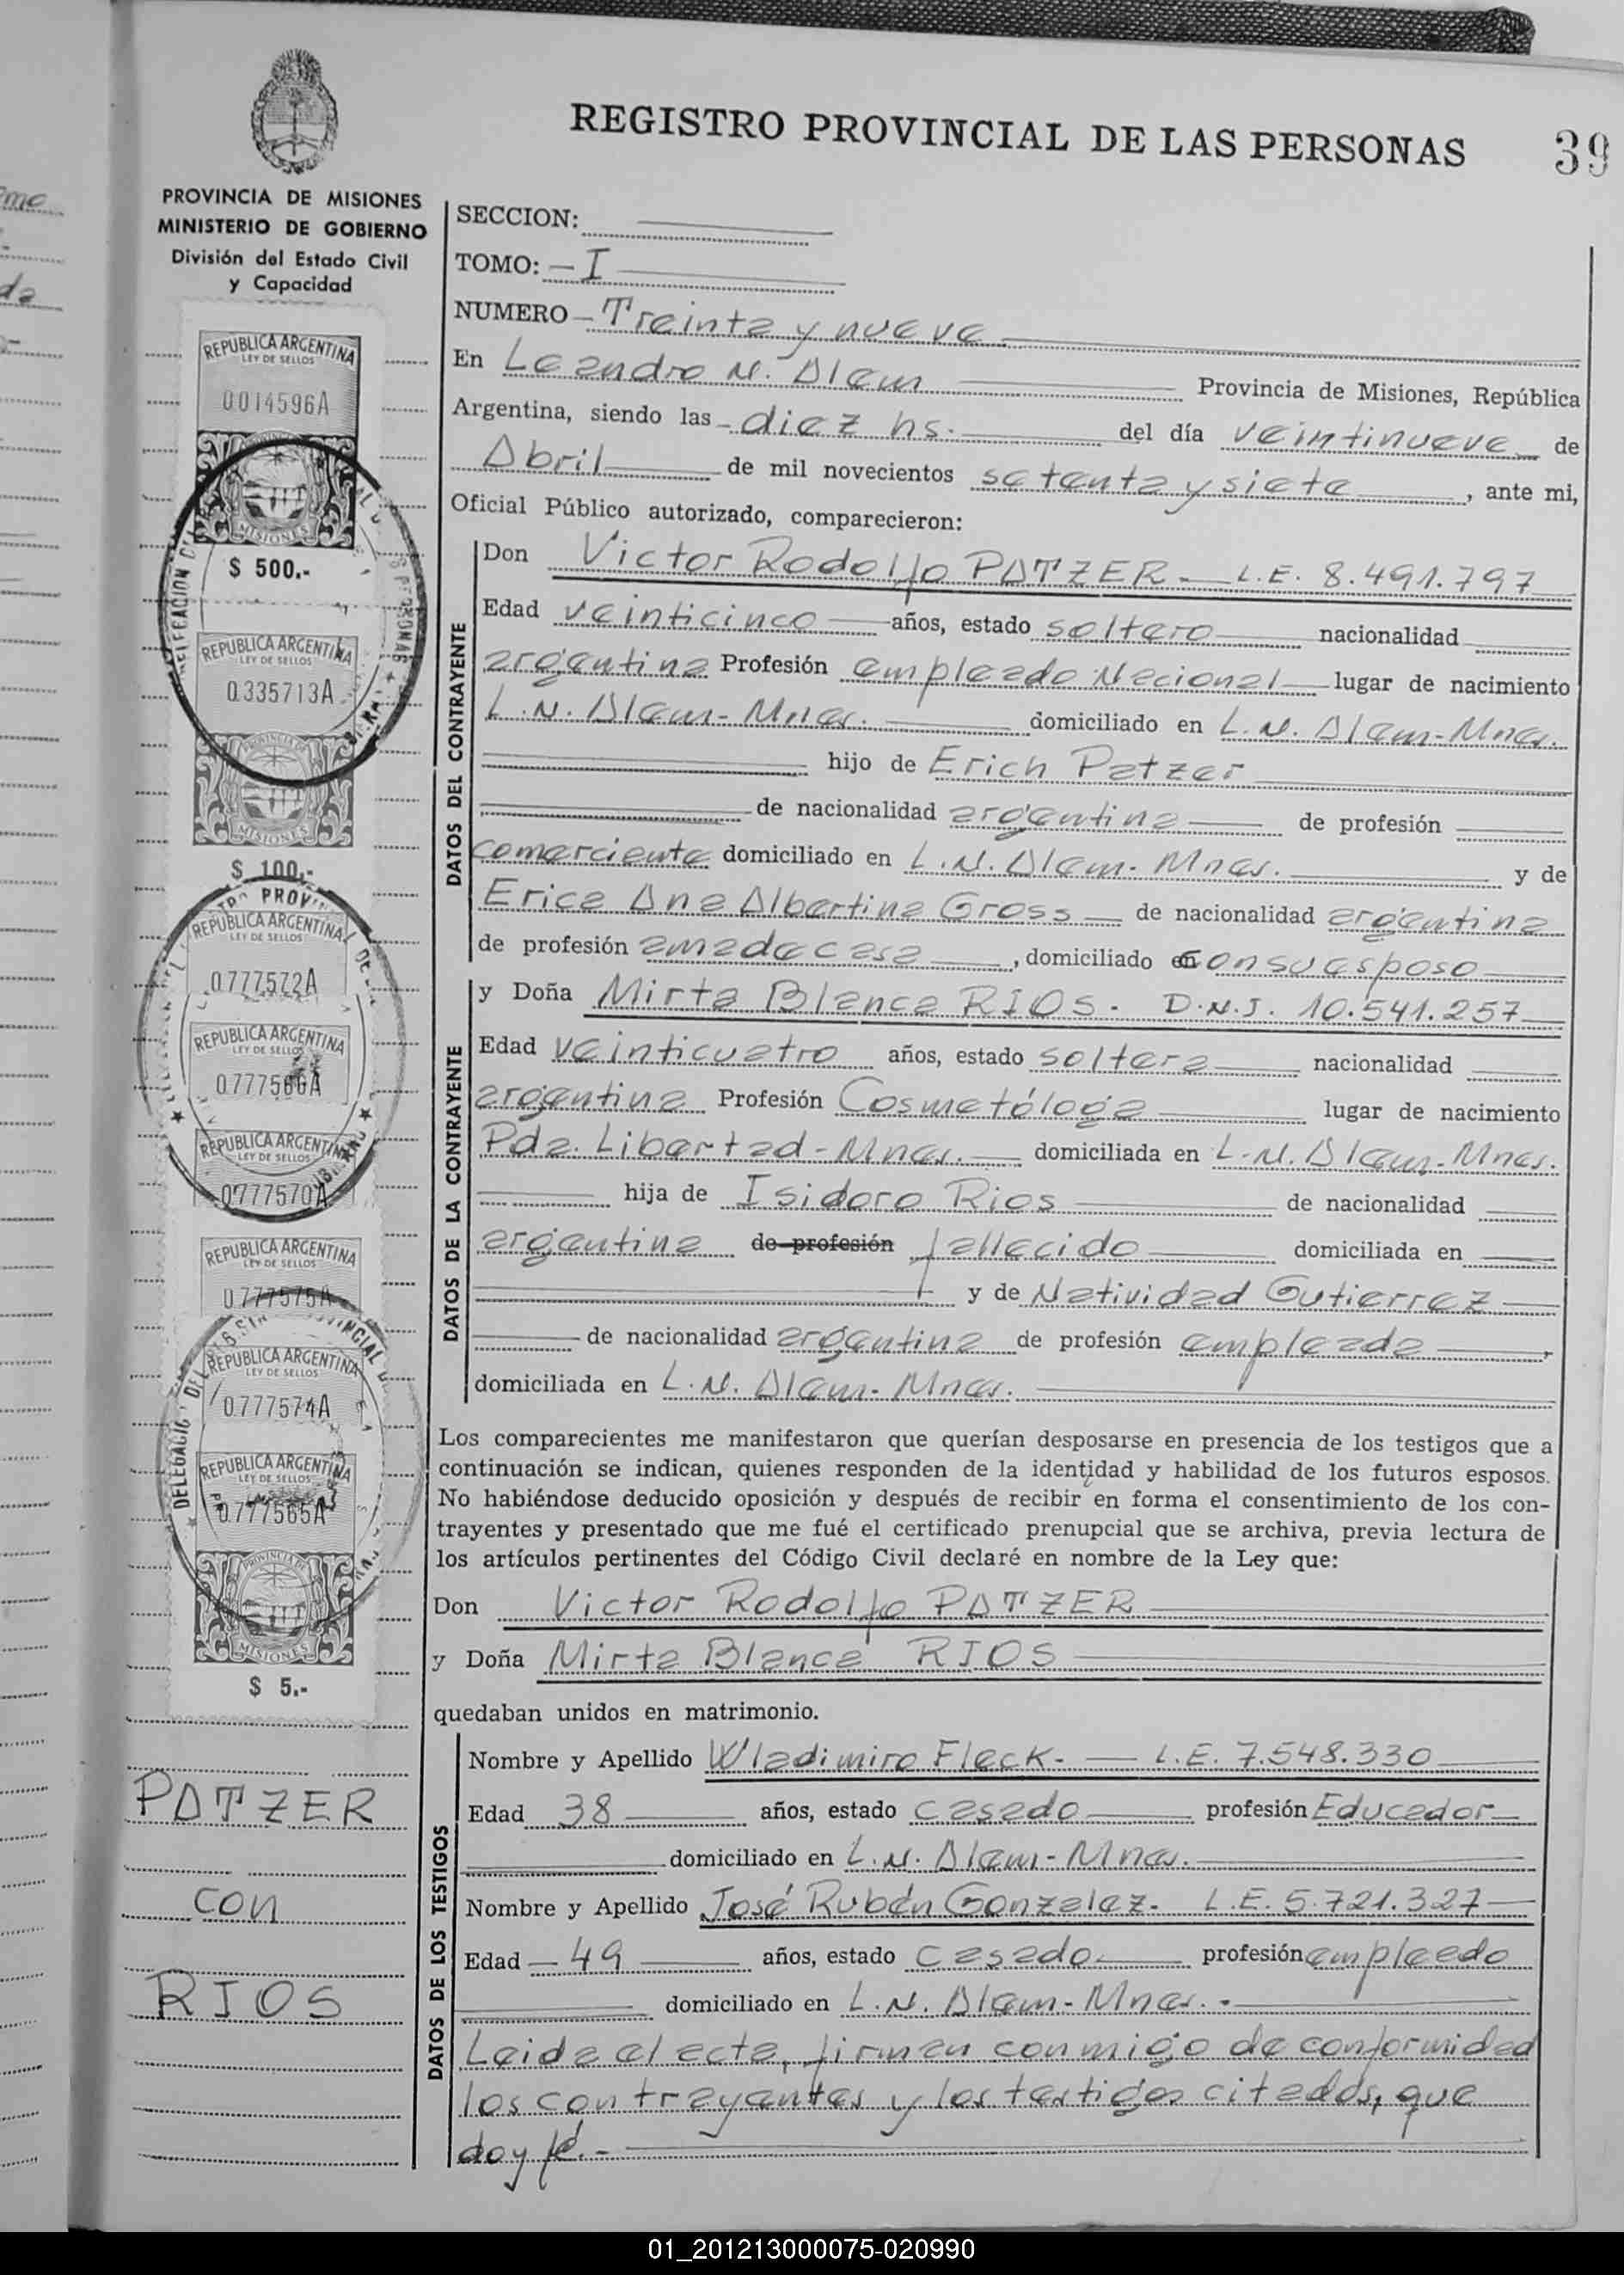 REGISTRO PROVINCIAL DE LAS PERSONAS
39
PROVINCIA DE MISIONES
MINISTERIO DE GOBIERNO
División del Estado Civil
y Capacidad
SECCION:
TOMO: - I
NUMERO - Treinta y nueve
En Leandro N. Alem Provincia de Misiones, República
Argentina, siendo las - diez hs. del día veintinueve de
Abril de mil novecientos setenta y siete, ante mi,
Oficial Público autorizado, comparecieron:
DATOS DEL CONTRAYENTE
Don Victor Rodolfo PATZER - L.E. 8.491.797
Edad veinticinco años, estado soltero nacionalidad
argentina Profesión empleado Nacional lugar de nacimiento
L.N. Alem - Mnes. domiciliado en L.N. Alem - Mnes.
hijo de Erich Patzer
de nacionalidad argentina de profesión
comerciante domiciliado en L.N. Alem - Mnes. y de
Erica Ana Albertina Gross de nacionalidad argentina
de profesión ama de casa, domiciliado con su esposo
DATOS DE LA CONTRAYENTE
y Doña Mirta Blanca RIOS. D.N.I. 10.541.257
Edad veinticuatro años, estado soltera nacionalidad
argentina Profesión Cosmetóloga lugar de nacimiento
Pda. Libertad - Mnes. domiciliada en L.N. Alem - Mnes.
hija de Isidoro Rios de nacionalidad
argentina de profesión fallecido domiciliada en
y de Natividad Gutierrez
de nacionalidad argentina de profesión empleada
domiciliada en L.N. Alem - Mnes.
Los comparecientes me manifestaron que querían desposarse en presencia de los testigos que a
continuación se indican, quienes responden de la identidad y habilidad de los futuros esposos.
No habiéndose deducido oposición y después de recibir en forma el consentimiento de los con-
trayentes y presentado que me fué el certificado prenupcial que se archiva, previa lectura de
los artículos pertinentes del Código Civil declaré en nombre de la Ley que:
Don Victor Rodolfo PATZER
y Doña Mirta Blanca RIOS
quedaban unidos en matrimonio.
DATOS DE LOS TESTIGOS
Nombre y Apellido Wladimiro Fleck - L.E. 7.548.330
Edad 38 años, estado casado profesión Educador
domiciliado en L.N. Alem - Mnes.
Nombre y Apellido José Rubén Gonzalez - L.E. 5.721.327
Edad - 49 años, estado casado profesión empleado
domiciliado en L.N. Alem - Mnes. -
Leida el acta, firman conmigo de conformidad
los contrayentes y los testigos citados, que
doy fé. -
REPUBLICA ARGENTINA
LEY DE SELLOS
0014596A
MISIONES
$ 500.-
REPUBLICA ARGENTINA
LEY DE SELLOS
0.335713A
MISIONES
$ 100.-
REPUBLICA ARGENTINA
LEY DE SELLOS
0.777572A
REPUBLICA ARGENTINA
LEY DE SELLOS
0.777566A
REPUBLICA ARGENTINA
LEY DE SELLOS
0.777570A
REPUBLICA ARGENTINA
LEY DE SELLOS
0.777575A
REPUBLICA ARGENTINA
LEY DE SELLOS
0.777574A
REPUBLICA ARGENTINA
LEY DE SELLOS
0.777565A
MISIONES
$ 5.-
PATZER
con
RIOS
01_201213000075-020990